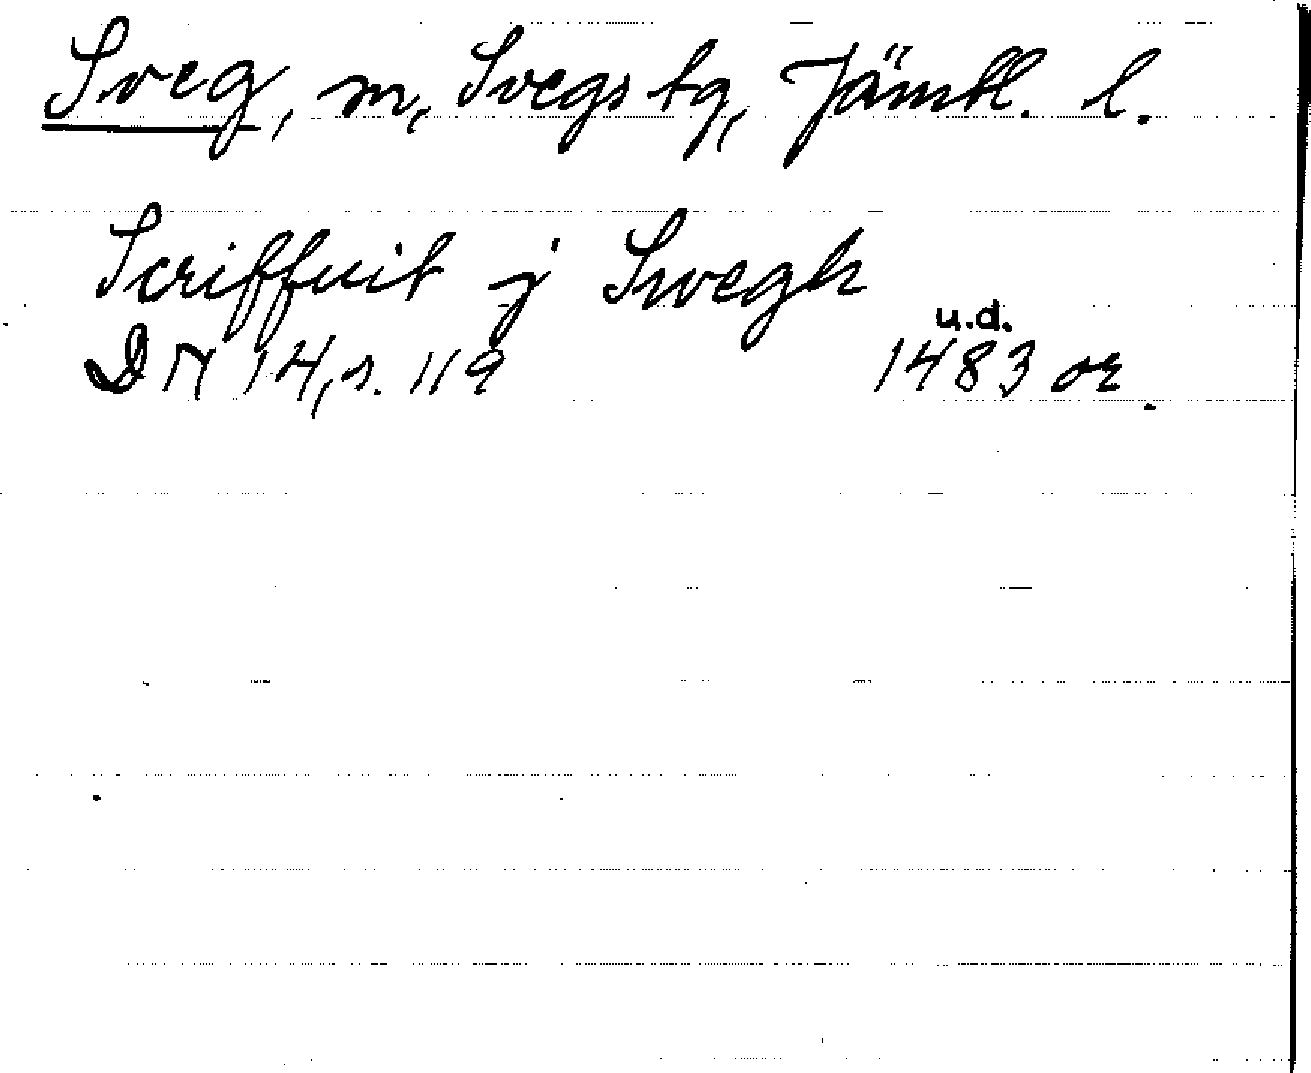 Sveg, m, Svegs tg, Jämtl. l.
Scriffuit j Swegh
u.d.
DN 14, s. 119 1483 or.